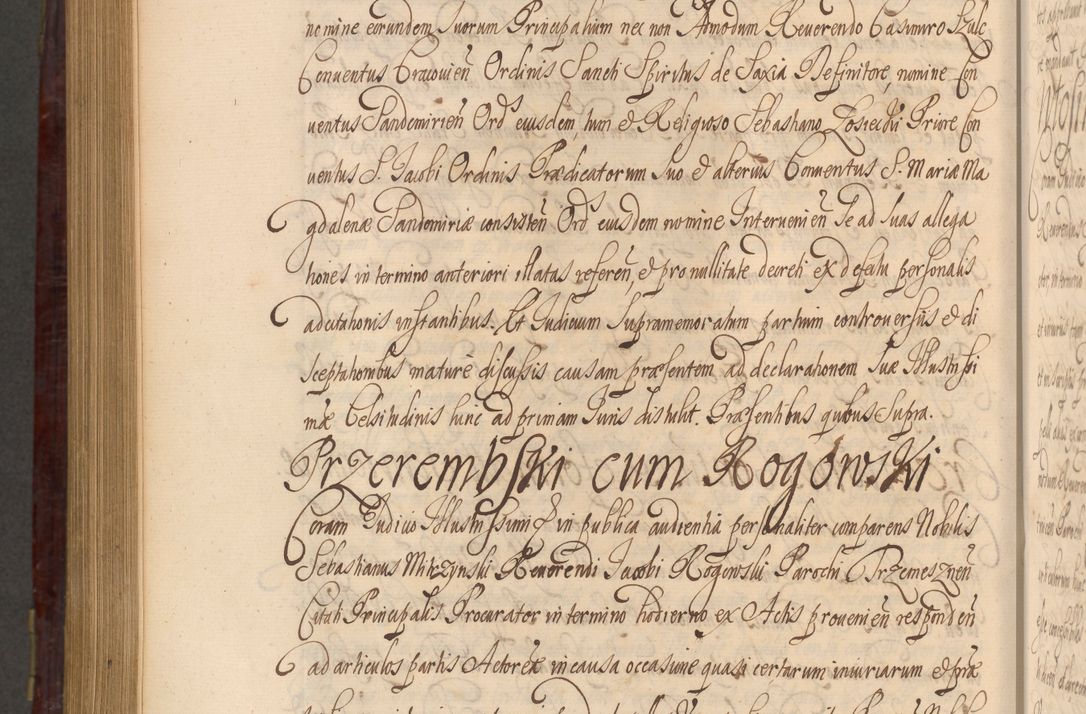 nomine eorundem suorum Principalium nec non Admodum Reuerendo Casimiro Szulc
Conuentus Cracouień Ordinis Sancti Spiritus de Saxia Definitore, nomine Con
uentus Sandomirień Ords eiusdem, tum et Religioso Sebastiano Łosiecki Priore Con
uentus S. Jacobi Ordinis Prædicatorum suo et alterius Conuentus S. Mariæ Ma
gdalenæ Sandomiriæ consisteń Ords eiusdem nomine Interuenień se ad suas allega
tiones in termino anteriori illatas refereń, et pro nullitate decreti ex defectu personalis
adcitationis instantibus. Et Iudicium supramemoratum partium controuersiis et di
sceptationibus mature discussis causam præsentem ad declarationem Suæ Illustrissi
mæ Celsitudinis hinc ad primam Iuris distulit. Præsentibus quibus supra.
Przerembski cum Rogowski
Coram Iudicio Illustrissimi in publica audientia personaliter comparens Nobilis
Sebastianus Mirczynski Reuerendi Jacobi Rogowski Parochi Przemeszneń
Citati Principalis Procurator in termino hodierno ex Actis prouenień respondeń
ad articulos partis Actoreæ in causa occasione quasi certarum iniuriarum et præ